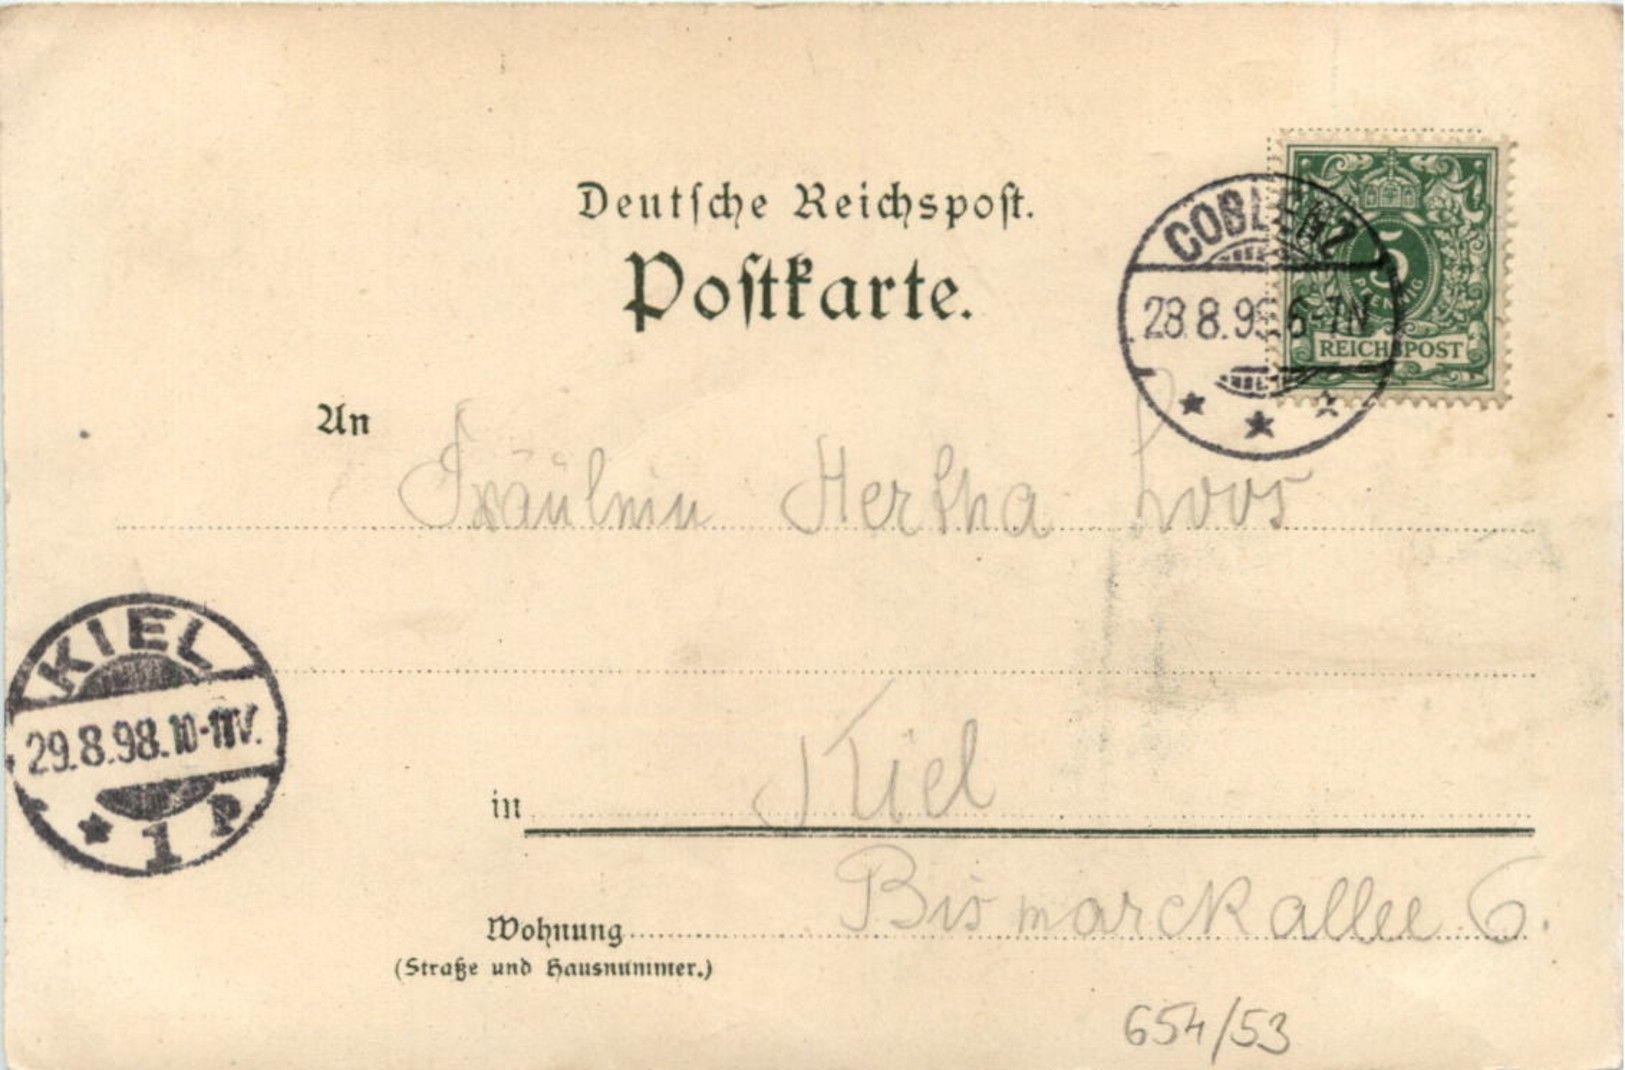 Deutsche Reichspost.
Postkarte.
COBLENZ
28.8.98 6-7N
5
PFENNIG
REICHSPOST
An Fräulein Hertha Loos
KIEL
29.8.98.10-11V.
* 1 P
in Kiel
Wohnung Bismarckallee 6.
(Straße und Hausnummer.)
654/53